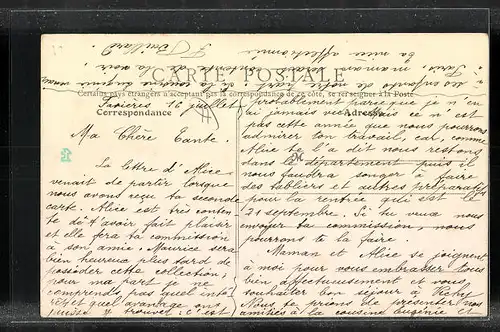 CARTE POSTALE
Certains pays étrangers n'acceptant pas de correspondance de ce côté, se renseigner à la Poste
Correspondance
Adresse
16 juillet
Ma Chère Tante.
La lettre d'Alice
venait de partir lorsque
nous avons reçu ta seconde
carte. Alice est très conten-
te de t'avoir fait plaisir
et elle fera ta commission
à son amie. Maurice sera
bien heureux plus tard de
posséder cette collection,
pour ma part je ne
comprends pas quel inté-
rêt et quel avantage on
puisse y trouver. C'est
probablement parce que je n'en
ai jamais ce n'est
pas cette année que nous pourrons
admirer ton travail, car, comme
Alice te l'a dit nous restons
dans le département puis il
nous faudra songer à faire
des tabliers et autres préparatifs
pour la rentrée qui est le
21 septembre. Si tu veux nous
envoyer ta commission, nous
pourrons te la faire.
Maman et Alice se joignent
à moi pour vous embrasser tous
bien affectueusement et vous
souhaiter bon séjour
Nous te prions de présenter nos
amitiés à la cousine Eugénie et
à ses enfants de notre part
Paris, maman contente de la voir.
Ta nièce affectionnée